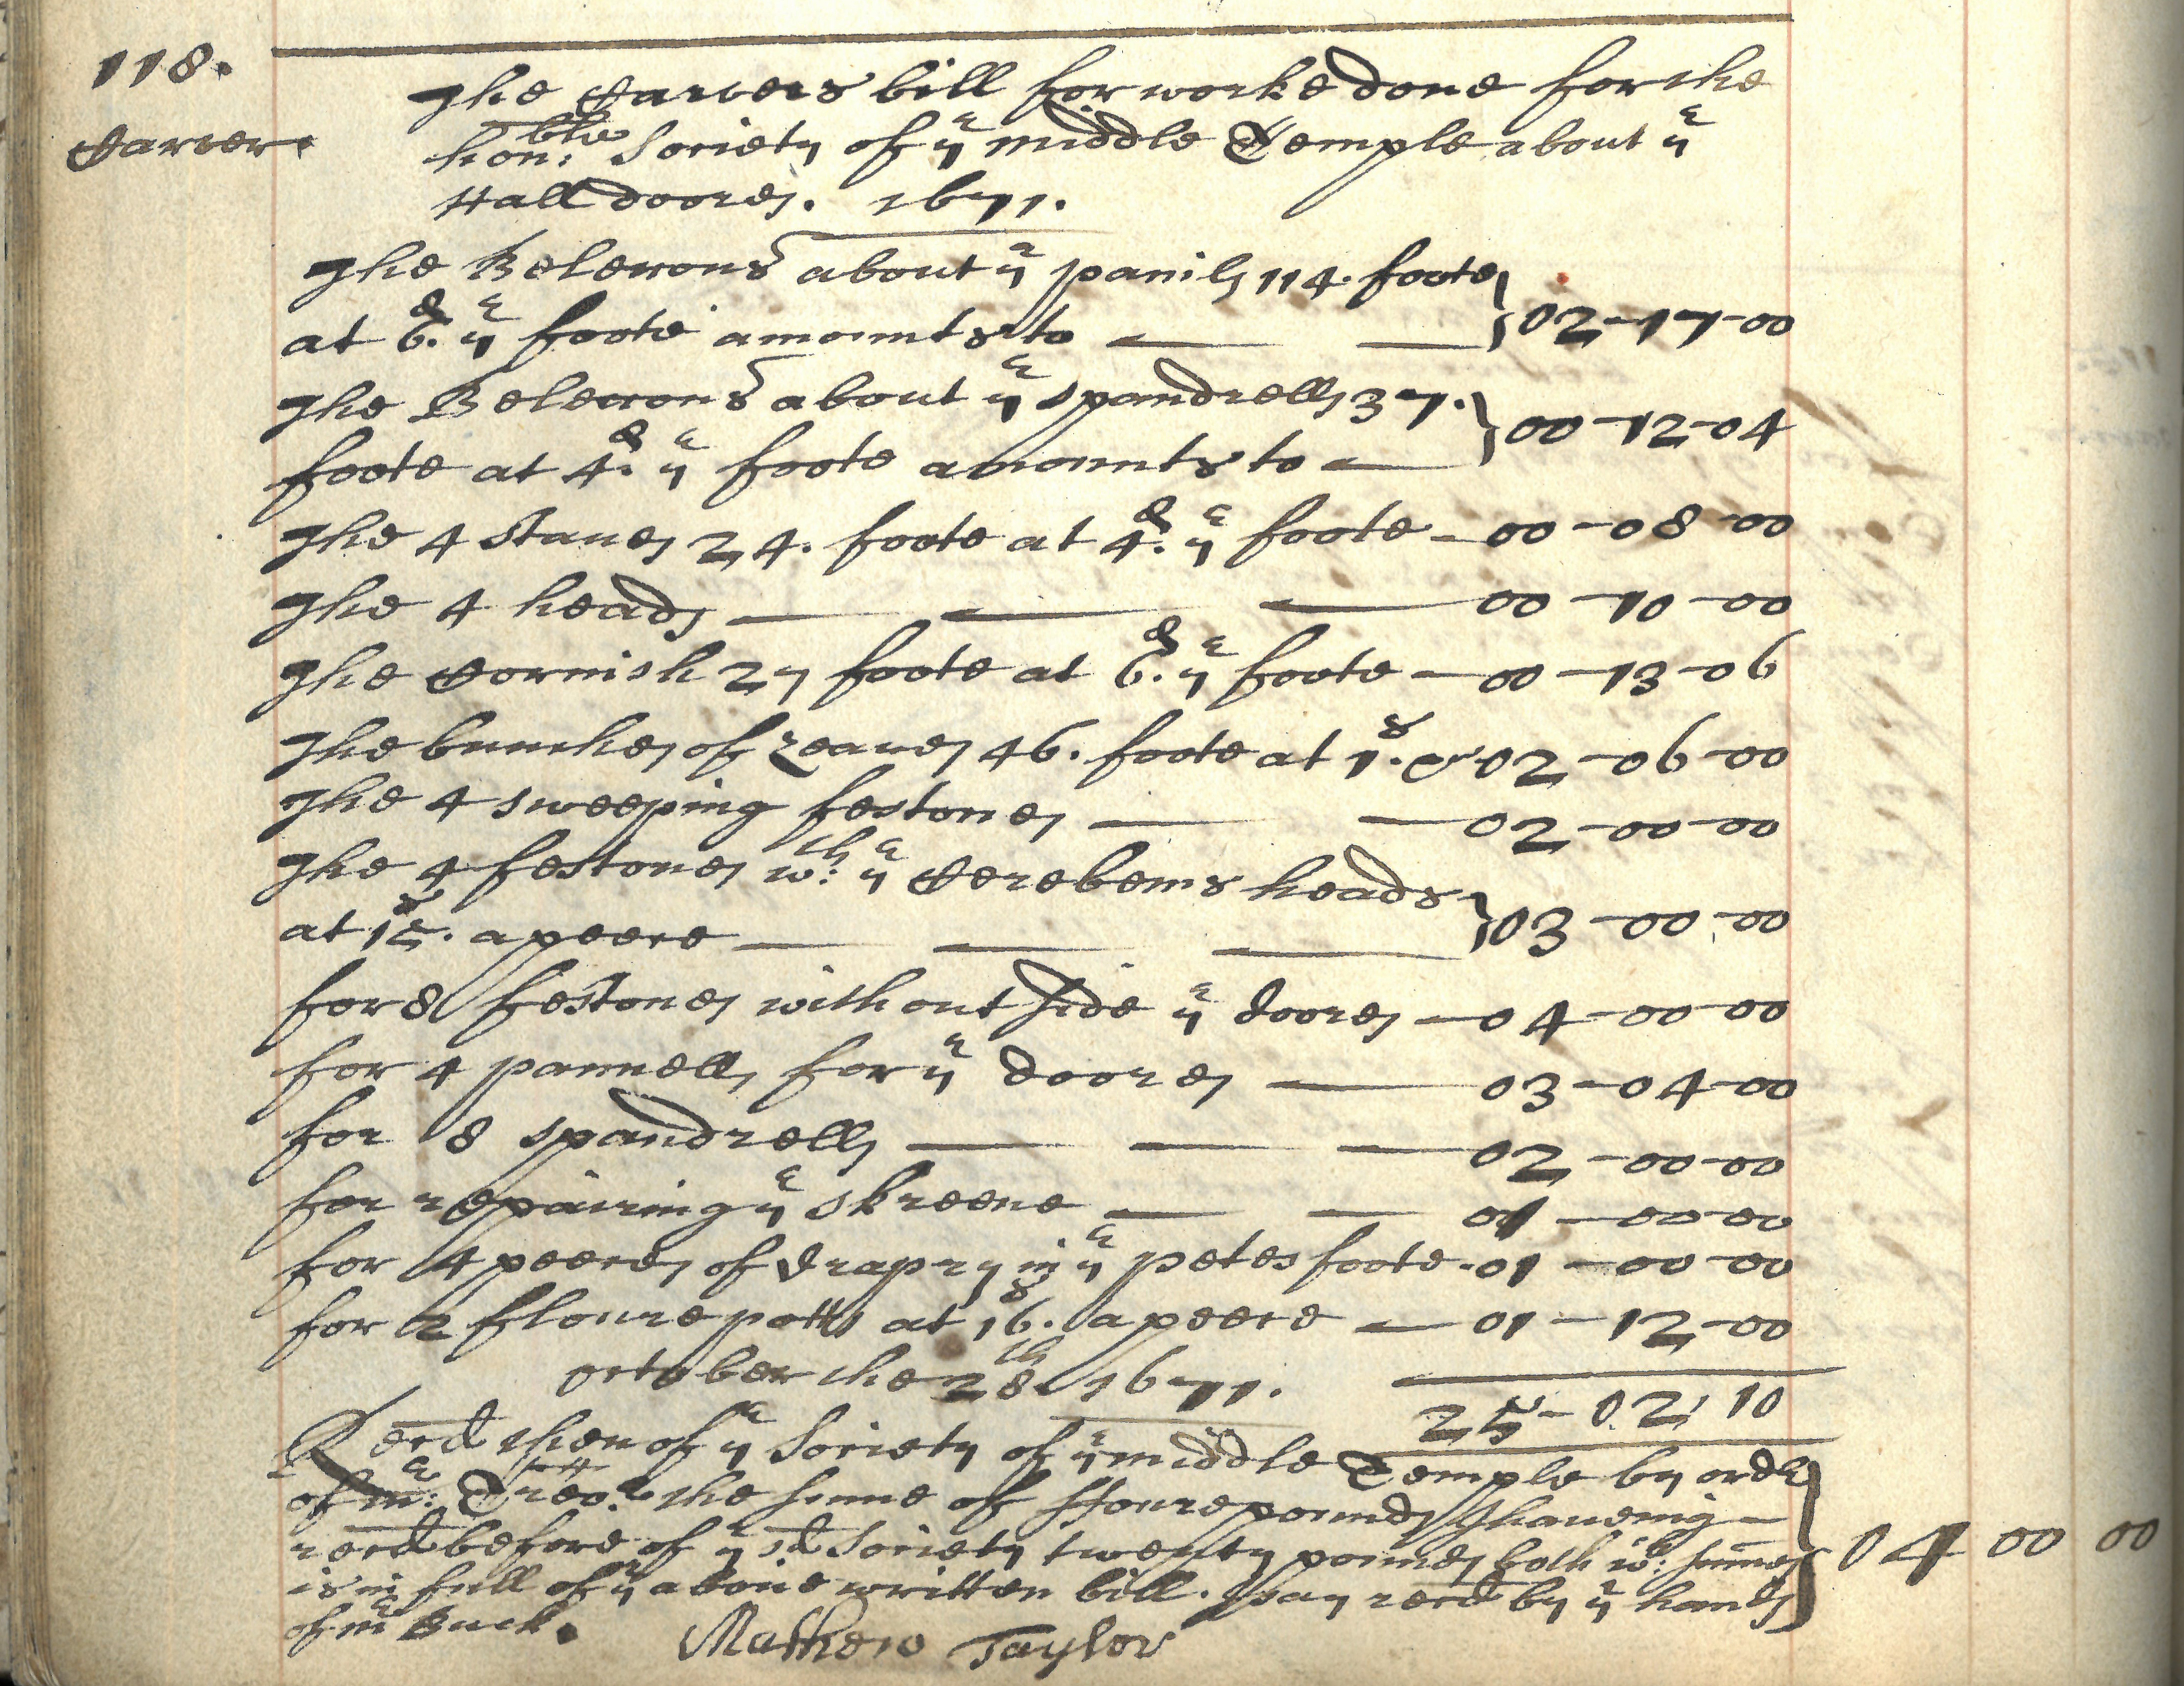 118.
Carver.
The Carvers bill for worke done for the
hon:ble Society of ye middle Temple about ye
Hall doores. 1671.
The Belexons about ye panils 114. foote
at 6.d ye foote amounts to — — 02-17-00
The Belexons about ye spandrells 37.
foote at 4.d ye foote amounts to — 00-12-04
The 4 Staues 24. foote at 4.d ye foote - 00-08-00
The 4 heads — — — 00-10-00
The Cornish 27 foote at 6.d ye foote — 00-13-06
The bunches of Leaues 46. foote at 1.s 02-06-00
The 4 sweeping festones — — 02-00-00
The 4 festones w:th ye Cerebems heads
at 15.s a peece — — — 03-00-00
for 8 festones without side ye doores — 04-00-00
for 4 pannells for ye doores — 03-04-00
for 8 spandrells — — — 02-00-00
for repairing ye skreene — — 01-00-00
for 4 peeces of drapry in ye petes foote - 01-00-00
for 2 floure potts at 16.s a peece — 01-12-00
October the 28th 1671.
25-02:10
Recd then of ye Society of ye middle Temple by order
of mr: Trear. the sume of ffoure pounds I haueing —
recd before of ye sd Society twenty pounds both wch: sumes
is in full of ye aboue written bill. I say recd by ye hands
of mr Buck. 04 00 00
Mathew Taylor